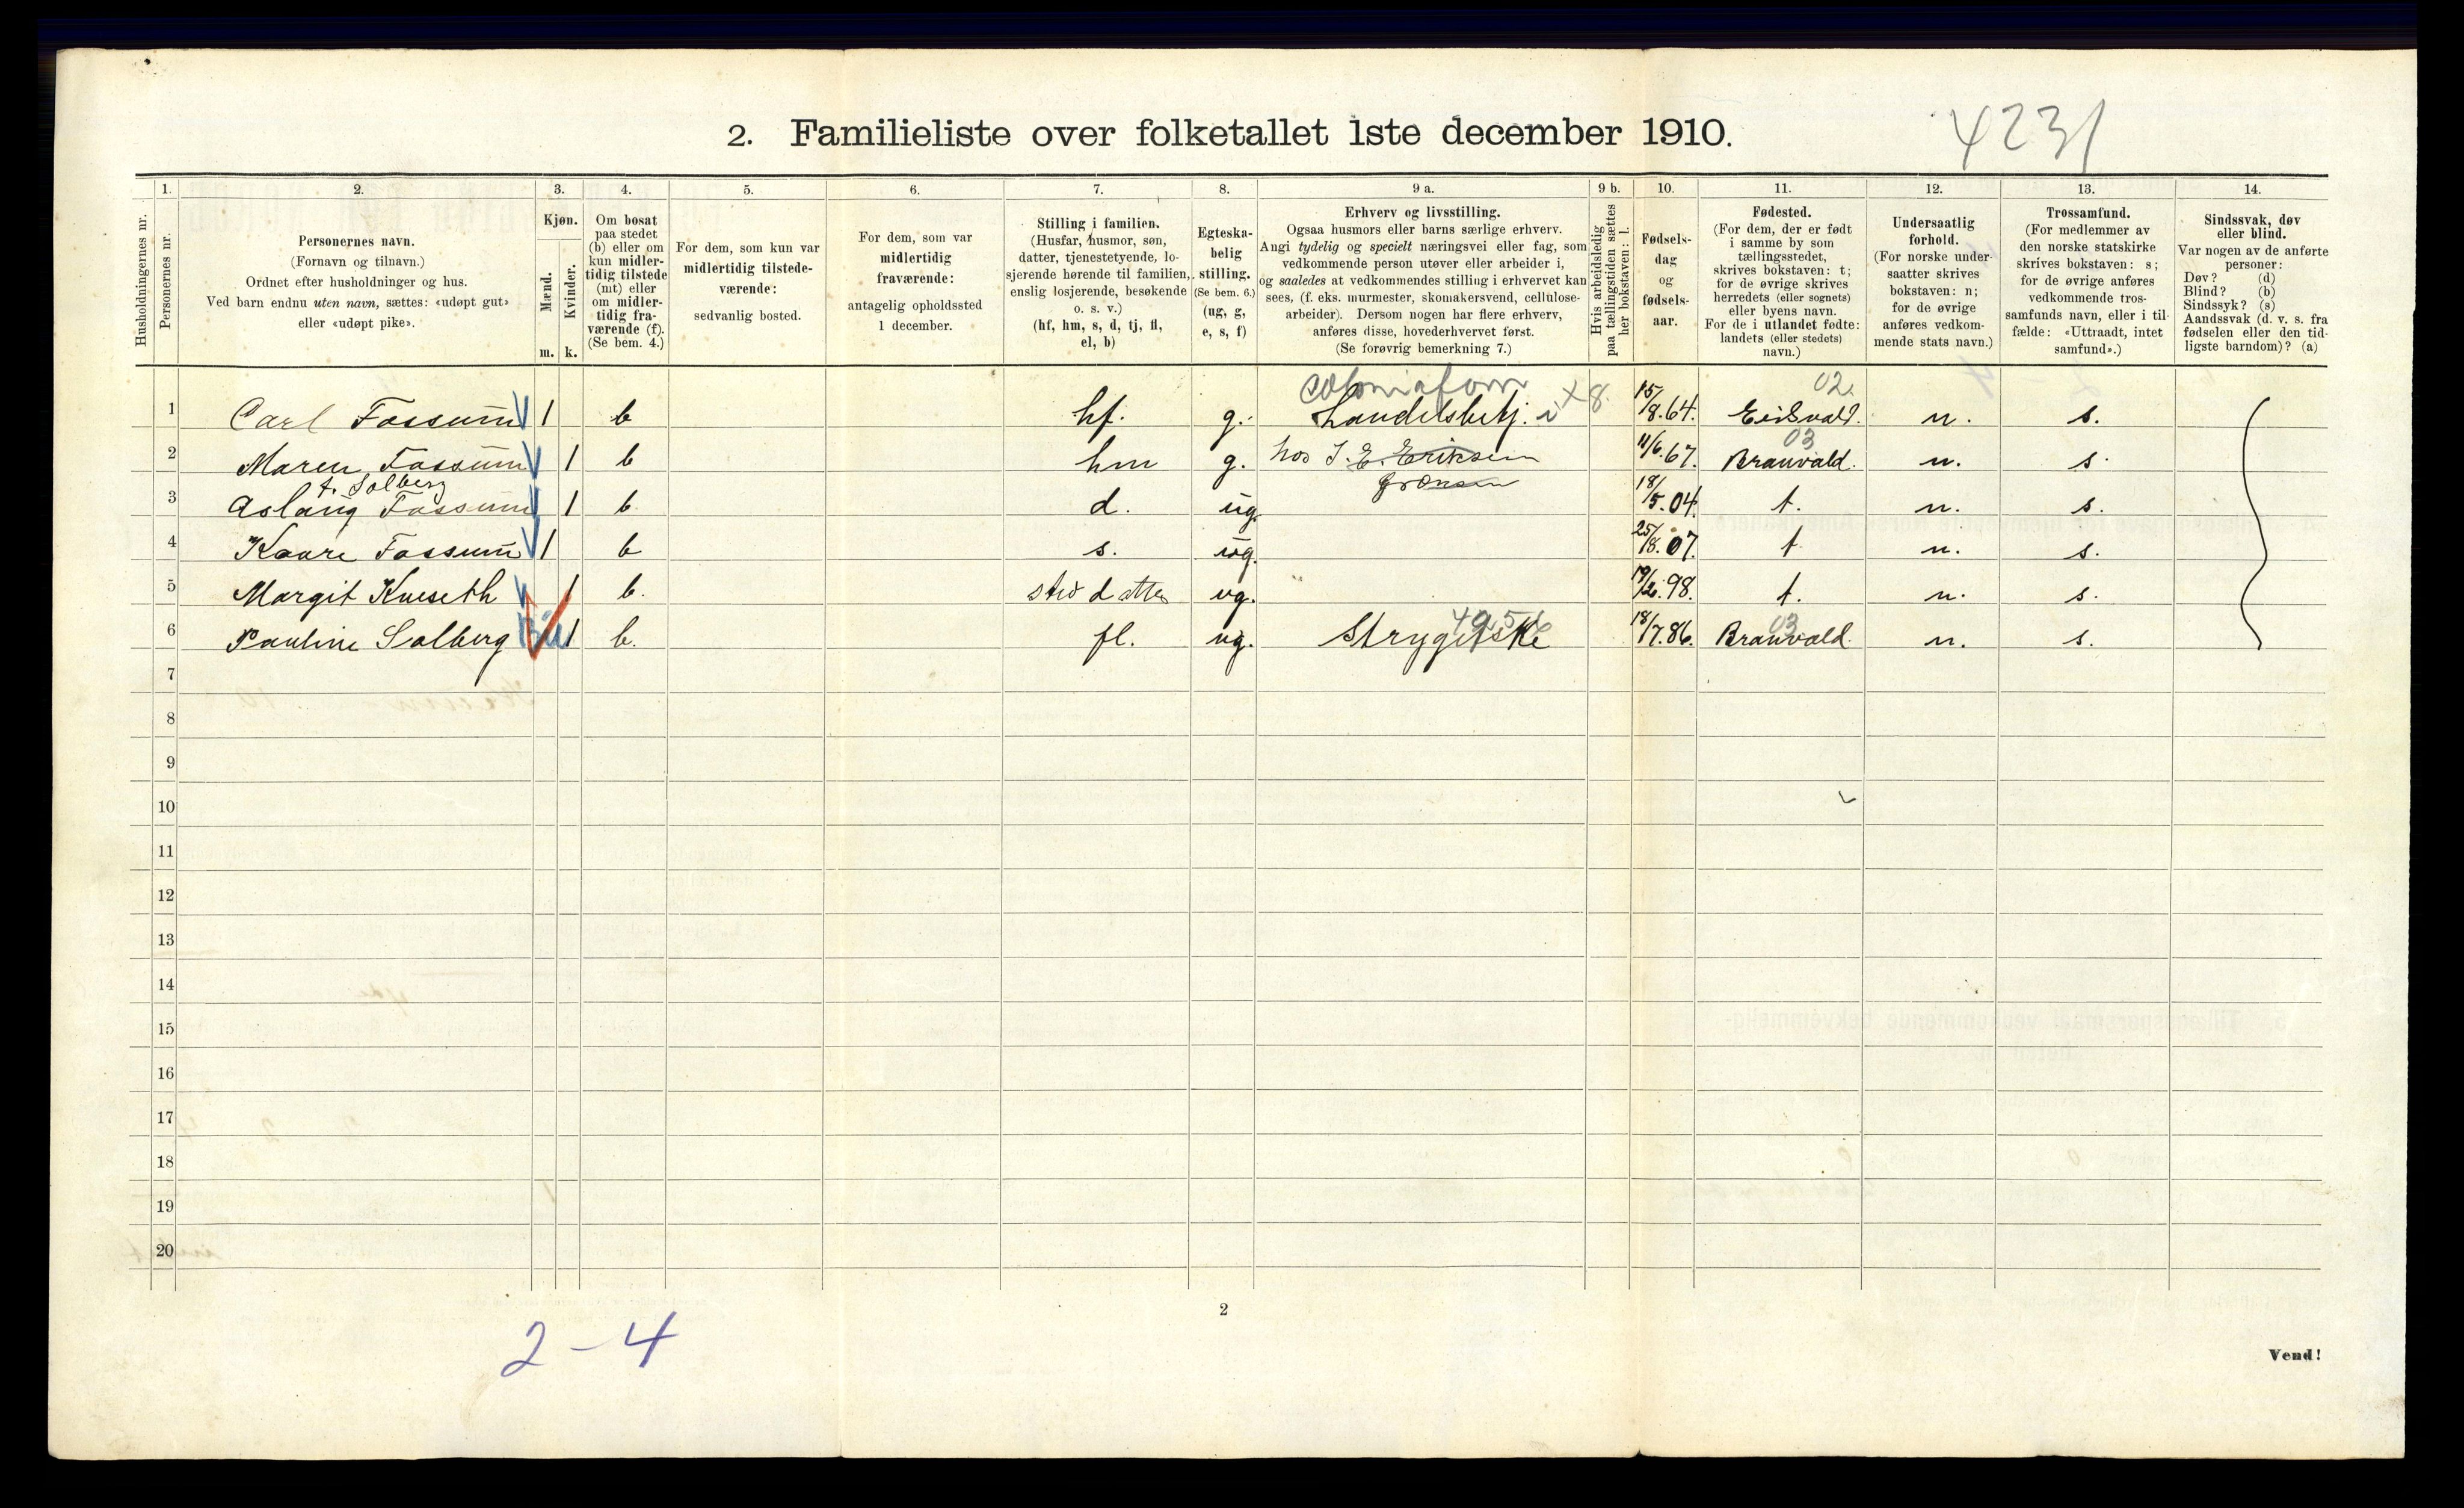 2. Familieliste over folketallet 1ste december 1910.
4231
1. 2. 3. 4. 5. 6. 7. 8. 9 a. 9 b. 10. 11. 12. 13. 14.
Husholdningernes nr.
Personernes nr.
Personernes navn.
(Fornavn og tilnavn.)
Ordnet efter husholdninger og hus.
Ved barn endnu uten navn, sættes: «udøpt gut»
eller «udøpt pike».
Kjøn.
Mænd.
Kvinder.
m. k.
Om bosat
paa stedet
(b) eller om
kun midler-
tidig tilstede
(mt) eller
om midler-
tidig fra-
værende (f).
(Se bem. 4.)
For dem, som kun var
midlertidig tilstede-
værende:
sedvanlig bosted.
For dem, som var
midlertidig
fraværende:
antagelig opholdssted
1 december.
Stilling i familien.
(Husfar, husmor, søn,
datter, tjenestetyende, lo-
sjerende hørende til familien,
enslig losjerende, besøkende
o. s. v.)
(hf, hm, s, d, tj, fl,
el, b)
Egteska-
belig
stilling.
(Se bem. 6.)
(ug, g,
e, s, f)
Erhverv og livsstilling.
Ogsaa husmors eller barns særlige erhverv.
Angi tydelig og specielt næringsvei eller fag, som
vedkommende person utøver eller arbeider i,
og saaledes at vedkommendes stilling i erhvervet kan
sees, (f. eks. murmester, skomakersvend, cellulose-
arbeider). Dersom nogen har flere erhverv,
anføres disse, hovederhvervet først.
(Se forøvrig bemerkning 7.)
Hvis arbeidsledig
paa tællingstiden sættes
her bokstaven: l.
Fødsels-
dag
og
fødsels-
aar.
Fødested.
(For dem, der er født
i samme by som
tællingsstedet,
skrives bokstaven: t;
for de øvrige skrives
herredets (eller sognets)
eller byens navn.
For de i utlandet fødte:
landets (eller stedets)
navn.)
Undersaatlig
forhold.
(For norske under-
saatter skrives
bokstaven: n;
for de øvrige
anføres vedkom-
mende stats navn.)
Trossamfund.
(For medlemmer av
den norske statskirke
skrives bokstaven: s;
for de øvrige anføres
vedkommende tros-
samfunds navn, eller i til-
fælde: «Uttraadt, intet
samfund».)
Sindssvak, døv
eller blind.
Var nogen av de anførte
personer:
Døv? (d)
Blind? (b)
Sindssyk? (s)
Aandssvak (d. v. s. fra
fødselen eller den tid-
ligste barndom)? (a)
8. 02.
1 Carl Fossum 1 b hf. g. Handelsbetj. i 15/8.64. Eidsvald. n. s.
03
2 Maren Fossum 1 b hm g. hos J. E. Eriksen 11/6.67. Branvald. n. s.
f. Solberg Grønsen
3 Aslaug Fossum 1 b. d. ug. 18/5.04. t. n. s.
4 Kaare Fossum 1 b s. ug. 25/8.07. t n. s.
5 Margit Kneseth 1 b. sted datter ug. 19/2.98. t. n. s.
03
6 Pauline Solberg 1 b. fl. ug. Strygerske 18/7.86. Branvold. n. s.
7
8
9
10
11
12
13
14
15
16
17
18
19
20
2
2 - 4
Vend!